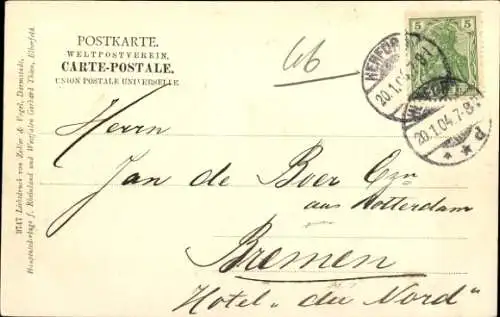 POSTKARTE.
WELTPOSTVEREIN.
CARTE-POSTALE.
UNION POSTALE UNIVERSELLE
66
5 5
HERFORD
20.1.04. 7-8
HERFORD
20.1.04. 7-8
Herrn
Jan de Boer Czn
aus Rotterdam
Bremen
Hotel "du Nord"
3747 Lichtdruck von Zedler & Vogel, Darmstadt.
f. Rheinland und Westfalen Gerhard Thien, Elberfeld.